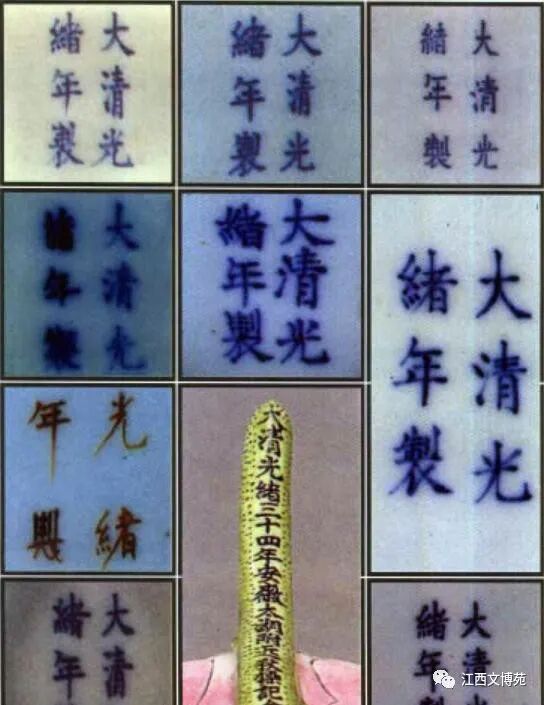 大清光
緒年製
大清光
緒年製
大清光
緒年製
大清光
緒年製
大清光
緒年製
大清光
緒年製
光緒
年製
大清光緒三十四年安徽太湖附近秋操記念
大清
緒年
大清
緒年
江西文博苑